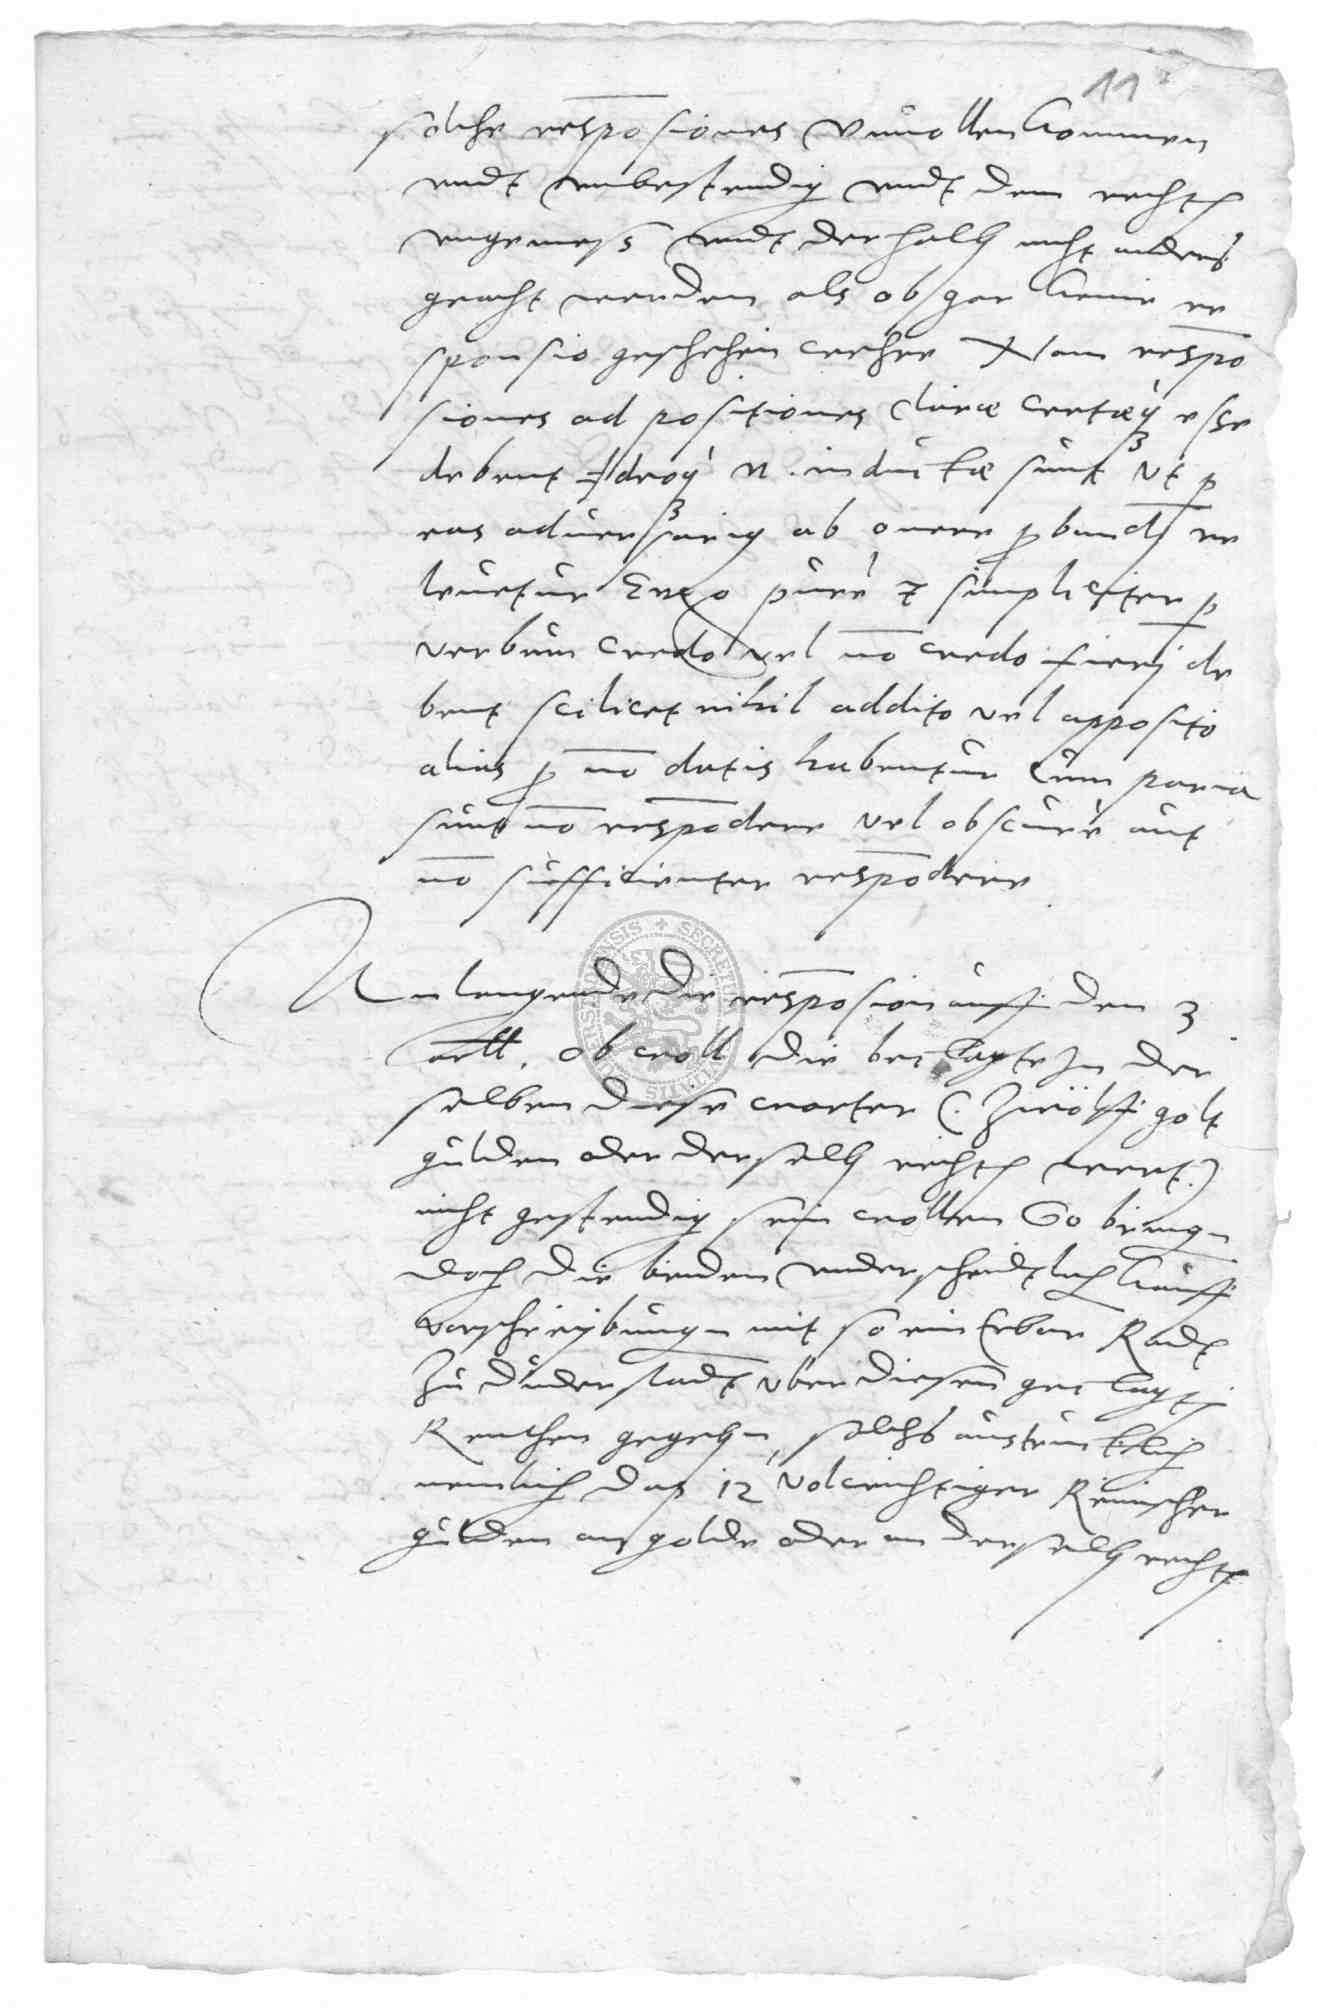 11
solche respōsiones vnuollenkommen
vndt vnbestendig vndt dem rechten
vngemess vndt derhalb nicht anders
geacht werden als ob gar keine re
sponsio geschehen wehre Nam respō
siones ad positiones claræ certæq esse
debent Ideoq n. inductæ sunt vt p
eas aduersarius ab onere pbandj re
leuetur Ergo purè & simpliciter p
verbum credo vel nō credo fierj de
bent scilicet nihil addito vel apposito
alias p nō datis habentur Cum paria
sunt nō respōdere vel obscurè aut
nō sufficienter respōdere
Anlangende die respōsion auff den 3
artl. ob woll die beclagte In der
selben diese worter (. Zwölff golt
gulden oder derselb rechten wert .)
nicht gestendig sein wollen So bringn
doch die beiden vnderscheidtlich kauff
vorschreybungn mit so ein Erbar Radt
Zu Duderstadt vber diesen geclagten
Renthen gegebn, solchs austrucklich
nemlich das 12 volwichtiger Reinischer
gulden an golde oder an derselb rechten
SECRETUM